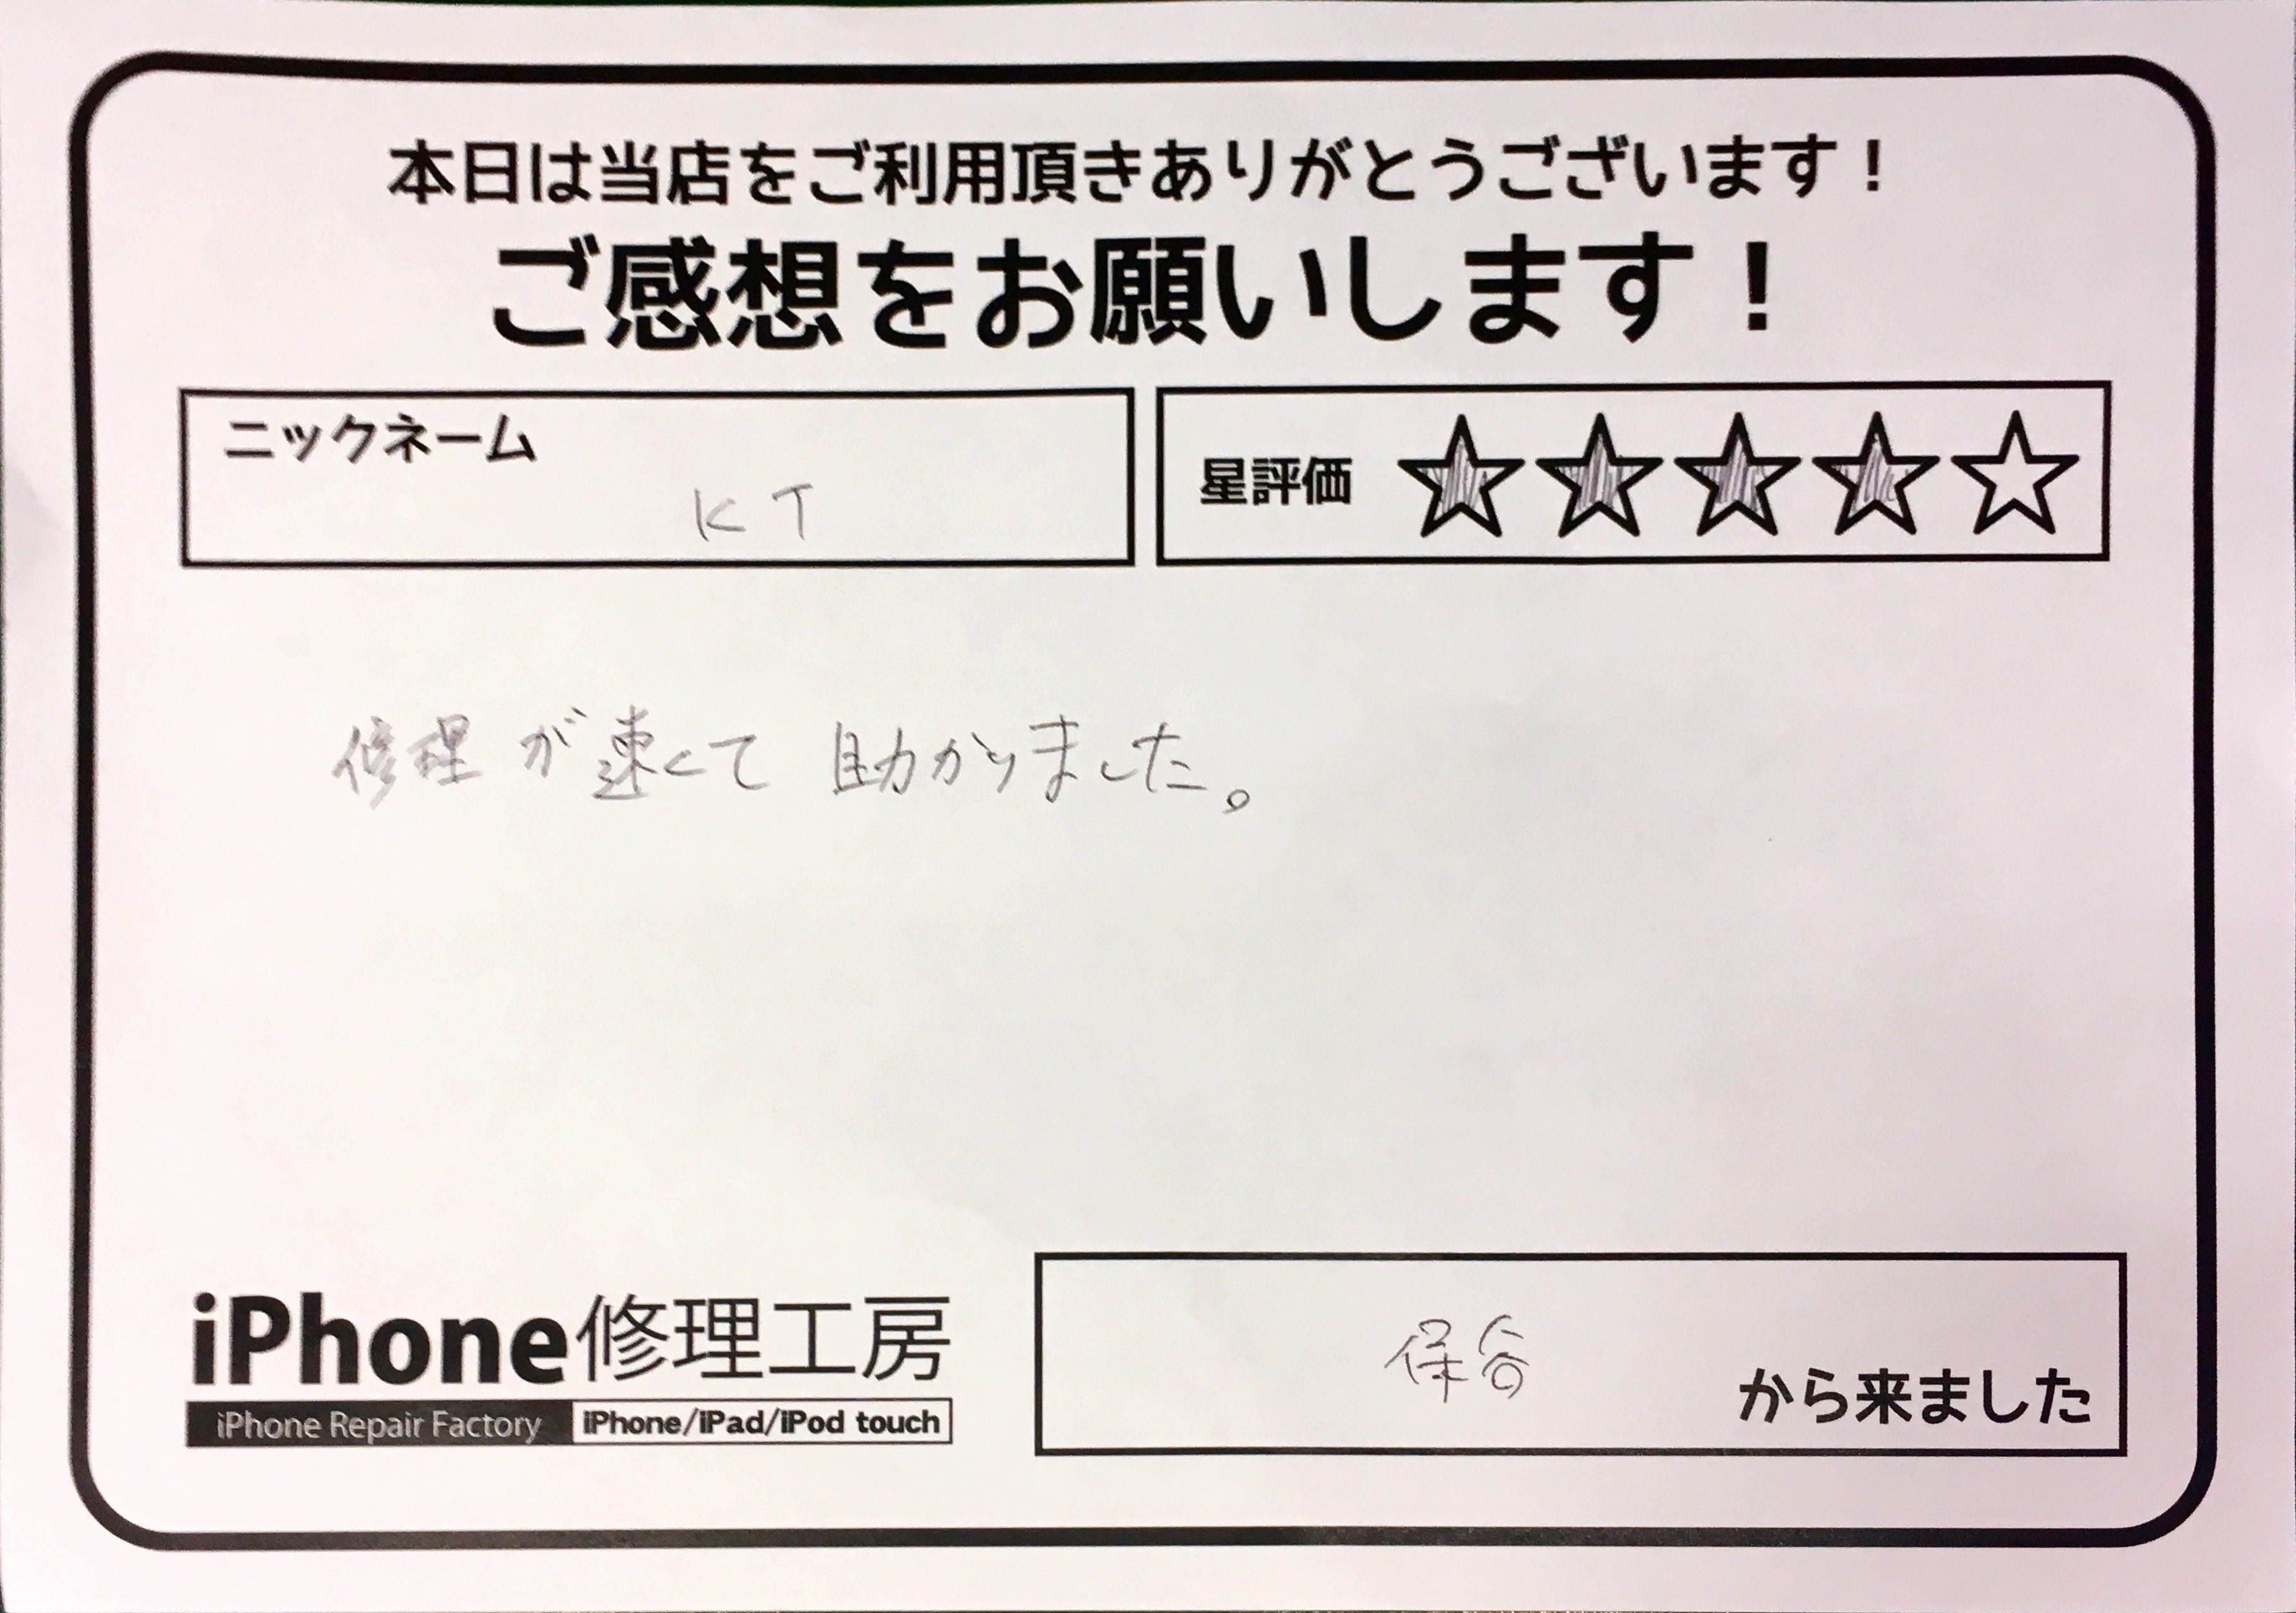 本日は当店をご利用頂きありがとうございます！
ご感想をお願いします！
ニックネーム
KT
星評価 ★★★★☆
修理が速くて助かりました。
iPhone修理工房
iPhone Repair Factory iPhone/iPad/iPod touch
保谷 から来ました